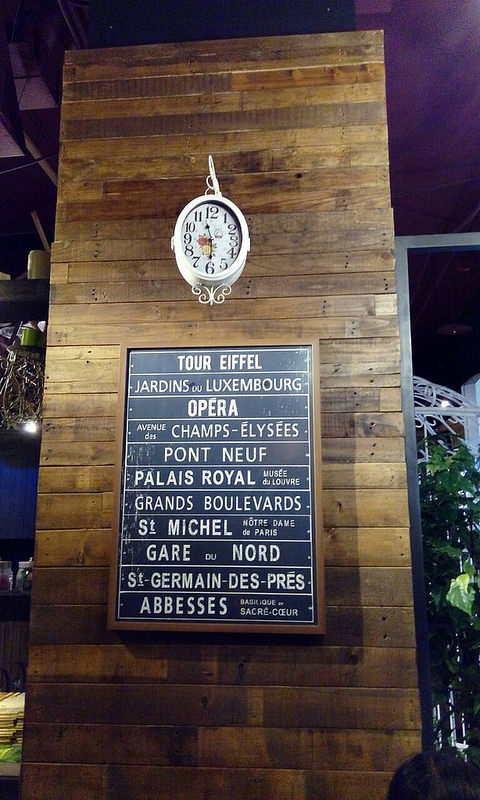 12
11 1
10 2
9 3
8 4
7 5
6
TOUR EIFFEL
JARDINS DU LUXEMBOURG
OPÉRA
AVENUE des CHAMPS-ÉLYSÉES
PONT NEUF
PALAIS ROYAL MUSÉE du LOUVRE
GRANDS BOULEVARDS
St MICHEL NÔTRE DAME de PARIS
GARE DU NORD
St-GERMAIN-DES-PRÉS
ABBESSES BASILIQUE du SACRÉ-CŒUR